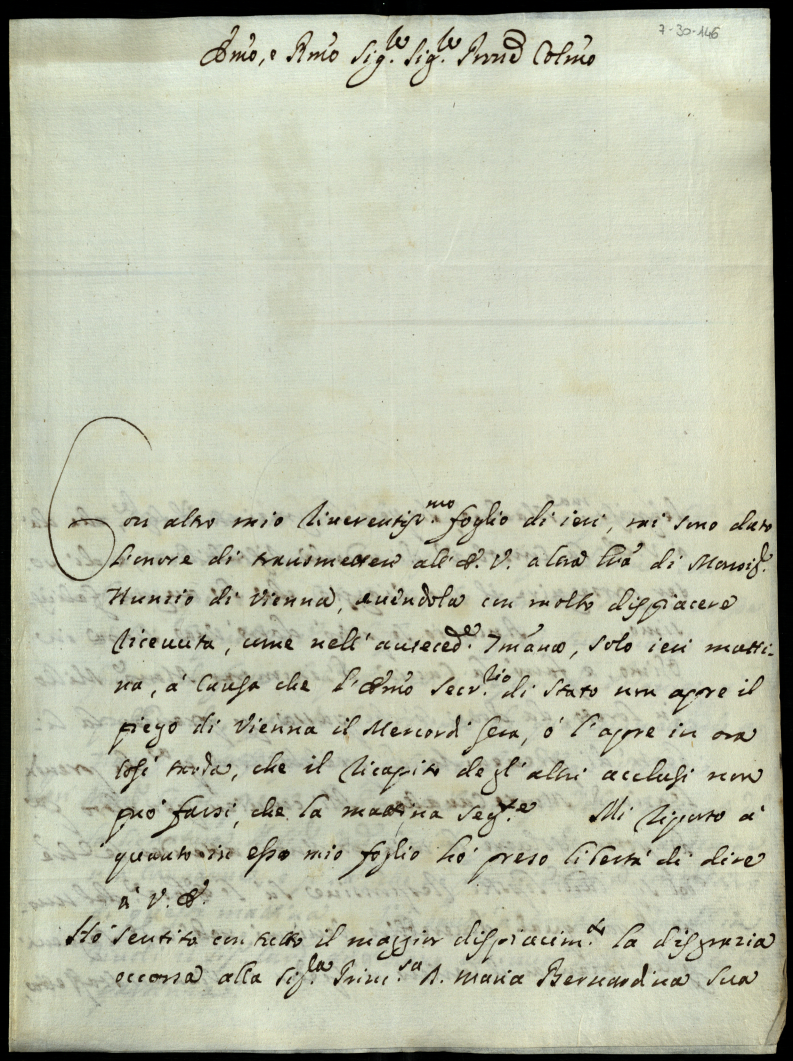 7-30-146
Emo, e Rmo Sig.re Sig.re Prone Colmo
Con altro mio riverentiss.mo foglio di ieri, mi sono dato
l'onore di trasmettere all'E. V. altra lra di Monsig.e
Nunzio di Vienna, avendola con molto dispiacere
ricevuta, come nell'anteced.e 7mana, solo ieri matti-
na, à causa che l'Emo Secr.rio di Stato non apre il
piego di Vienna il Mercordì sera, ò l'apre in ora
così tarda, che il ricapito degl'altri acclusi non
può farsi, che la mattina seg.te Mi riporto à
quanto in esso mio foglio hò preso libertà di dire
à V. E.
Hò sentito con tutto il maggior dispiacim.to la disgrazia
occorsa alla Sig.ra Princ.sa D. Maria Bernardina sua